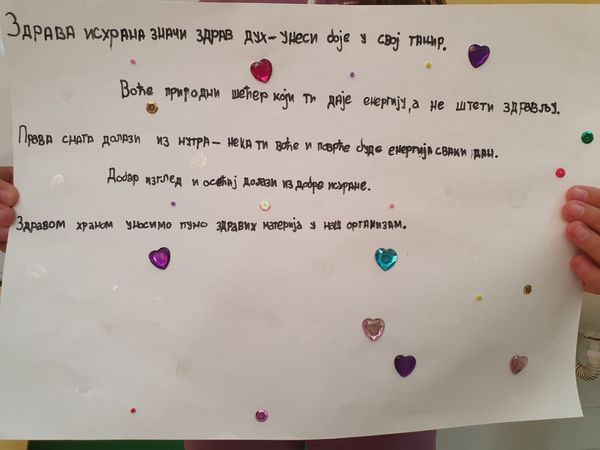 Здрава исхрана значи здрав дух – унеси боје у свој тањир.
Воће природни шећер који ти даје енергију, а не штети здрављу.
Права снага долази из нутра – нека ти воће и поврће буде енергија сваки дан.
Добар изглед и осећај долази из добре исхране.
Здравом храном уносимо пуно здравих материја у наш организам.